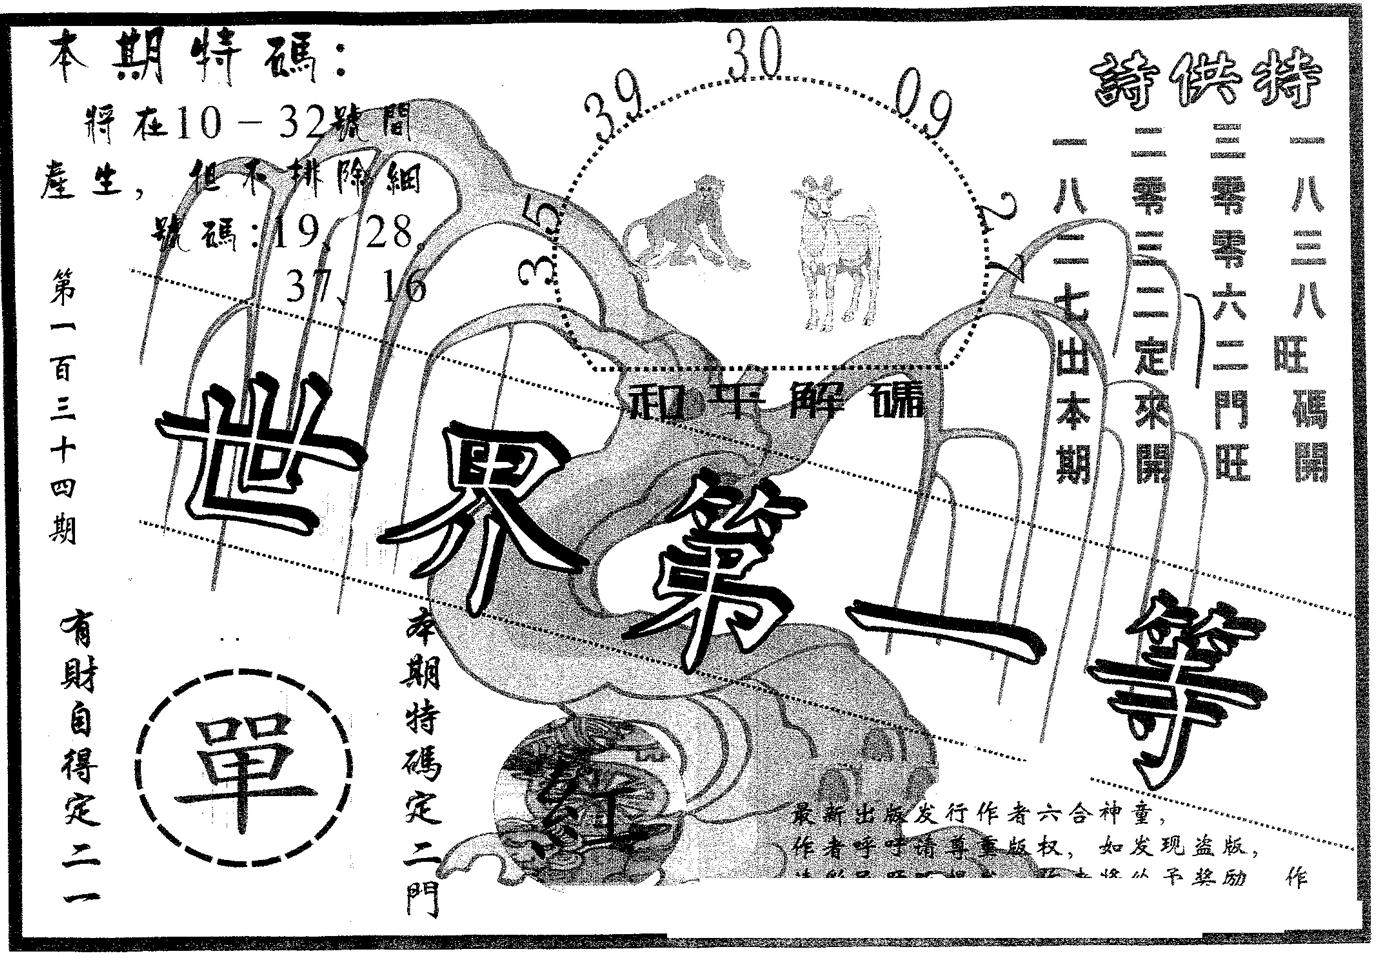 本期特碼：
將在10－32號間
產生，但不排除細
號碼：19、28。
37、16
第一百三十四期
35
39
30
09
27
和平解碼
特供詩
一八三八旺碼開
三零零六二門旺
二零三二定來開
一八二七出本期
世界第一等
有財自得定二一
單
本期特碼定二門
紅
最新出版发行作者六合神童，
作者呼吁请尊重版权，如发现盗版，
奖励 作